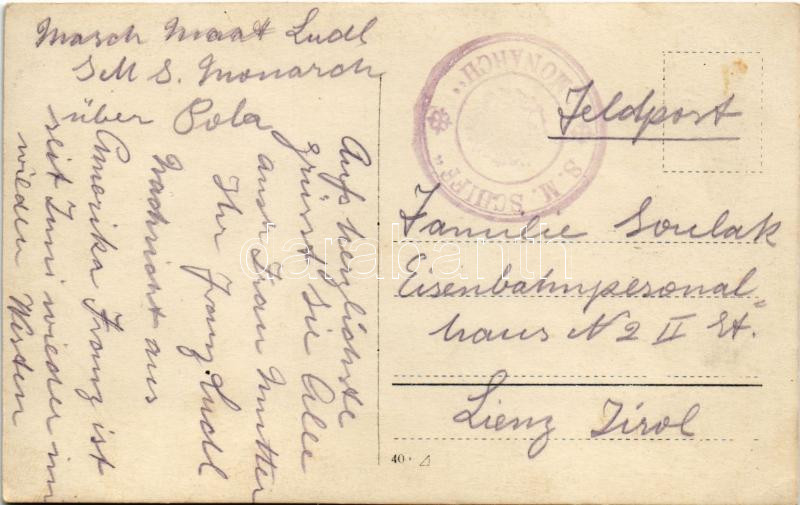 Masch Maat Ludl
S M S. Monarch
über Pola
Aufs herzlichste
grüsst Sie Alle
auch Frau Mutter
Ihr Franz Ludl
Nachricht aus
Amerika Franz ist
seit Juni wieder im
wieden
Feldpost
"S. M. SCHIFF"
"MONARCH"
Familie Soulak
Eisenbahnpersonal-
haus N 2 II St.
Lienz Tirol
40.
darabanth